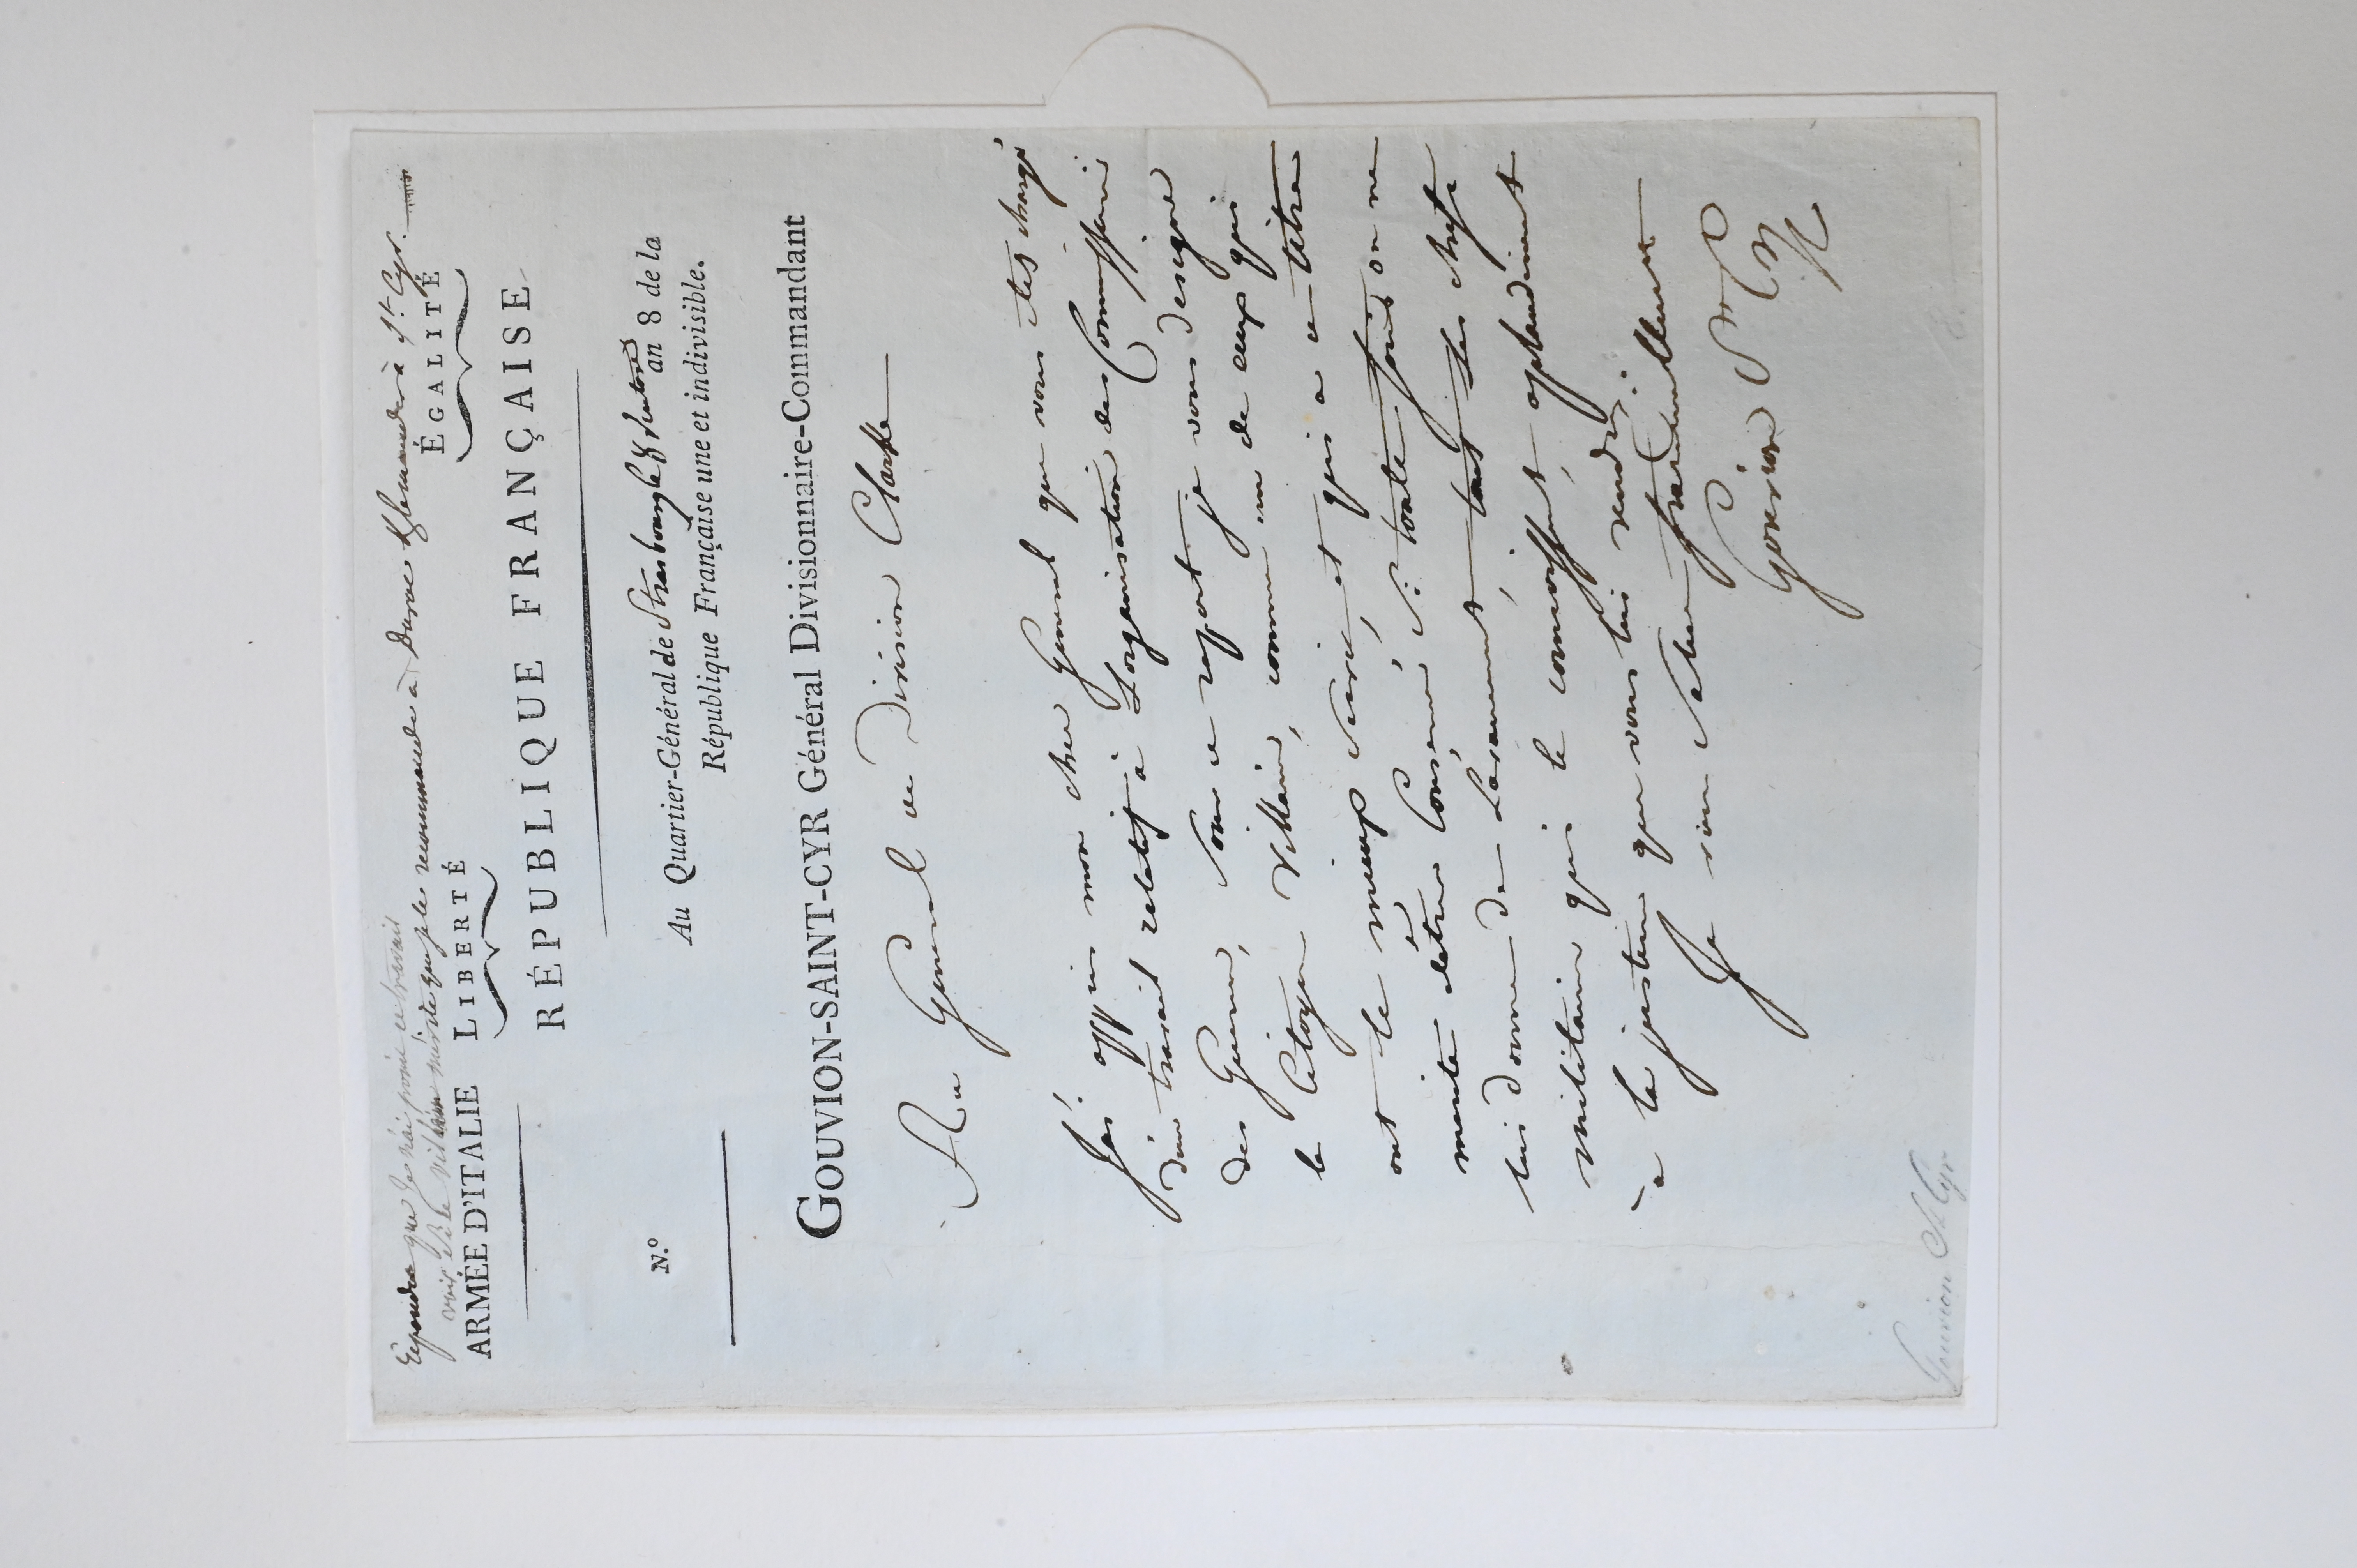 Répondre que je n'ai point ce travail
vois si le villain mérite que je le recommande à Darue & le demander à St. Cyr.
ARMÉE D'ITALIE LIBERTÉ ÉGALITÉ
RÉPUBLIQUE FRANÇAISE
Au Quartier-Général de Strasbourg le 8 Ventose an 8 de la
N.º République Française une et indivisible.
GOUVION-SAINT-CYR Général Divisionnaire-Commandant
Au Général de Division Clarke
J'ai appris mon cher Général que vous êtes chargé
d'un travail relatif à Lorganisation des Commissaires
des Guerres, sous ce rapport je vous designe
le Citoyen Villain, comme un de ceux qui
ont le mieux servi, et qui a ce titre
merite detre Conservé. Si toute fois on ne
lui donne de Lavancement, tous les chefs
militaires qui le connoissent applaudiront
a la justice que vous lui rendrés.
Je vous salue fraternellement
Gouvion St Cyr
Gouvion St Cyr